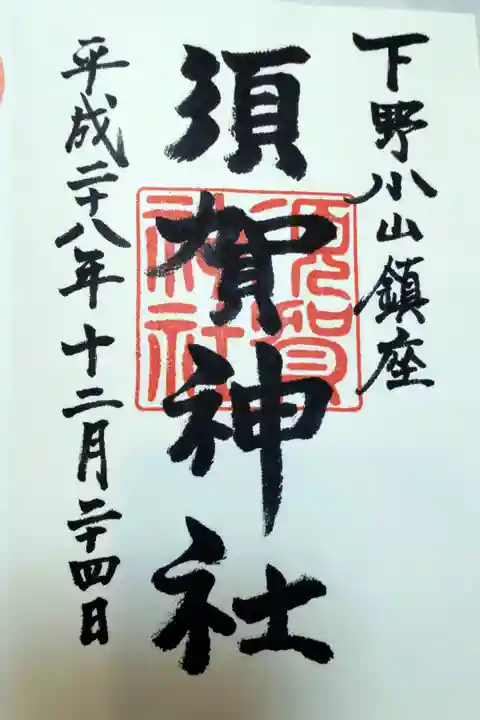 下野小山鎮座
須賀神社
須賀神社
平成二十八年十二月二十四日